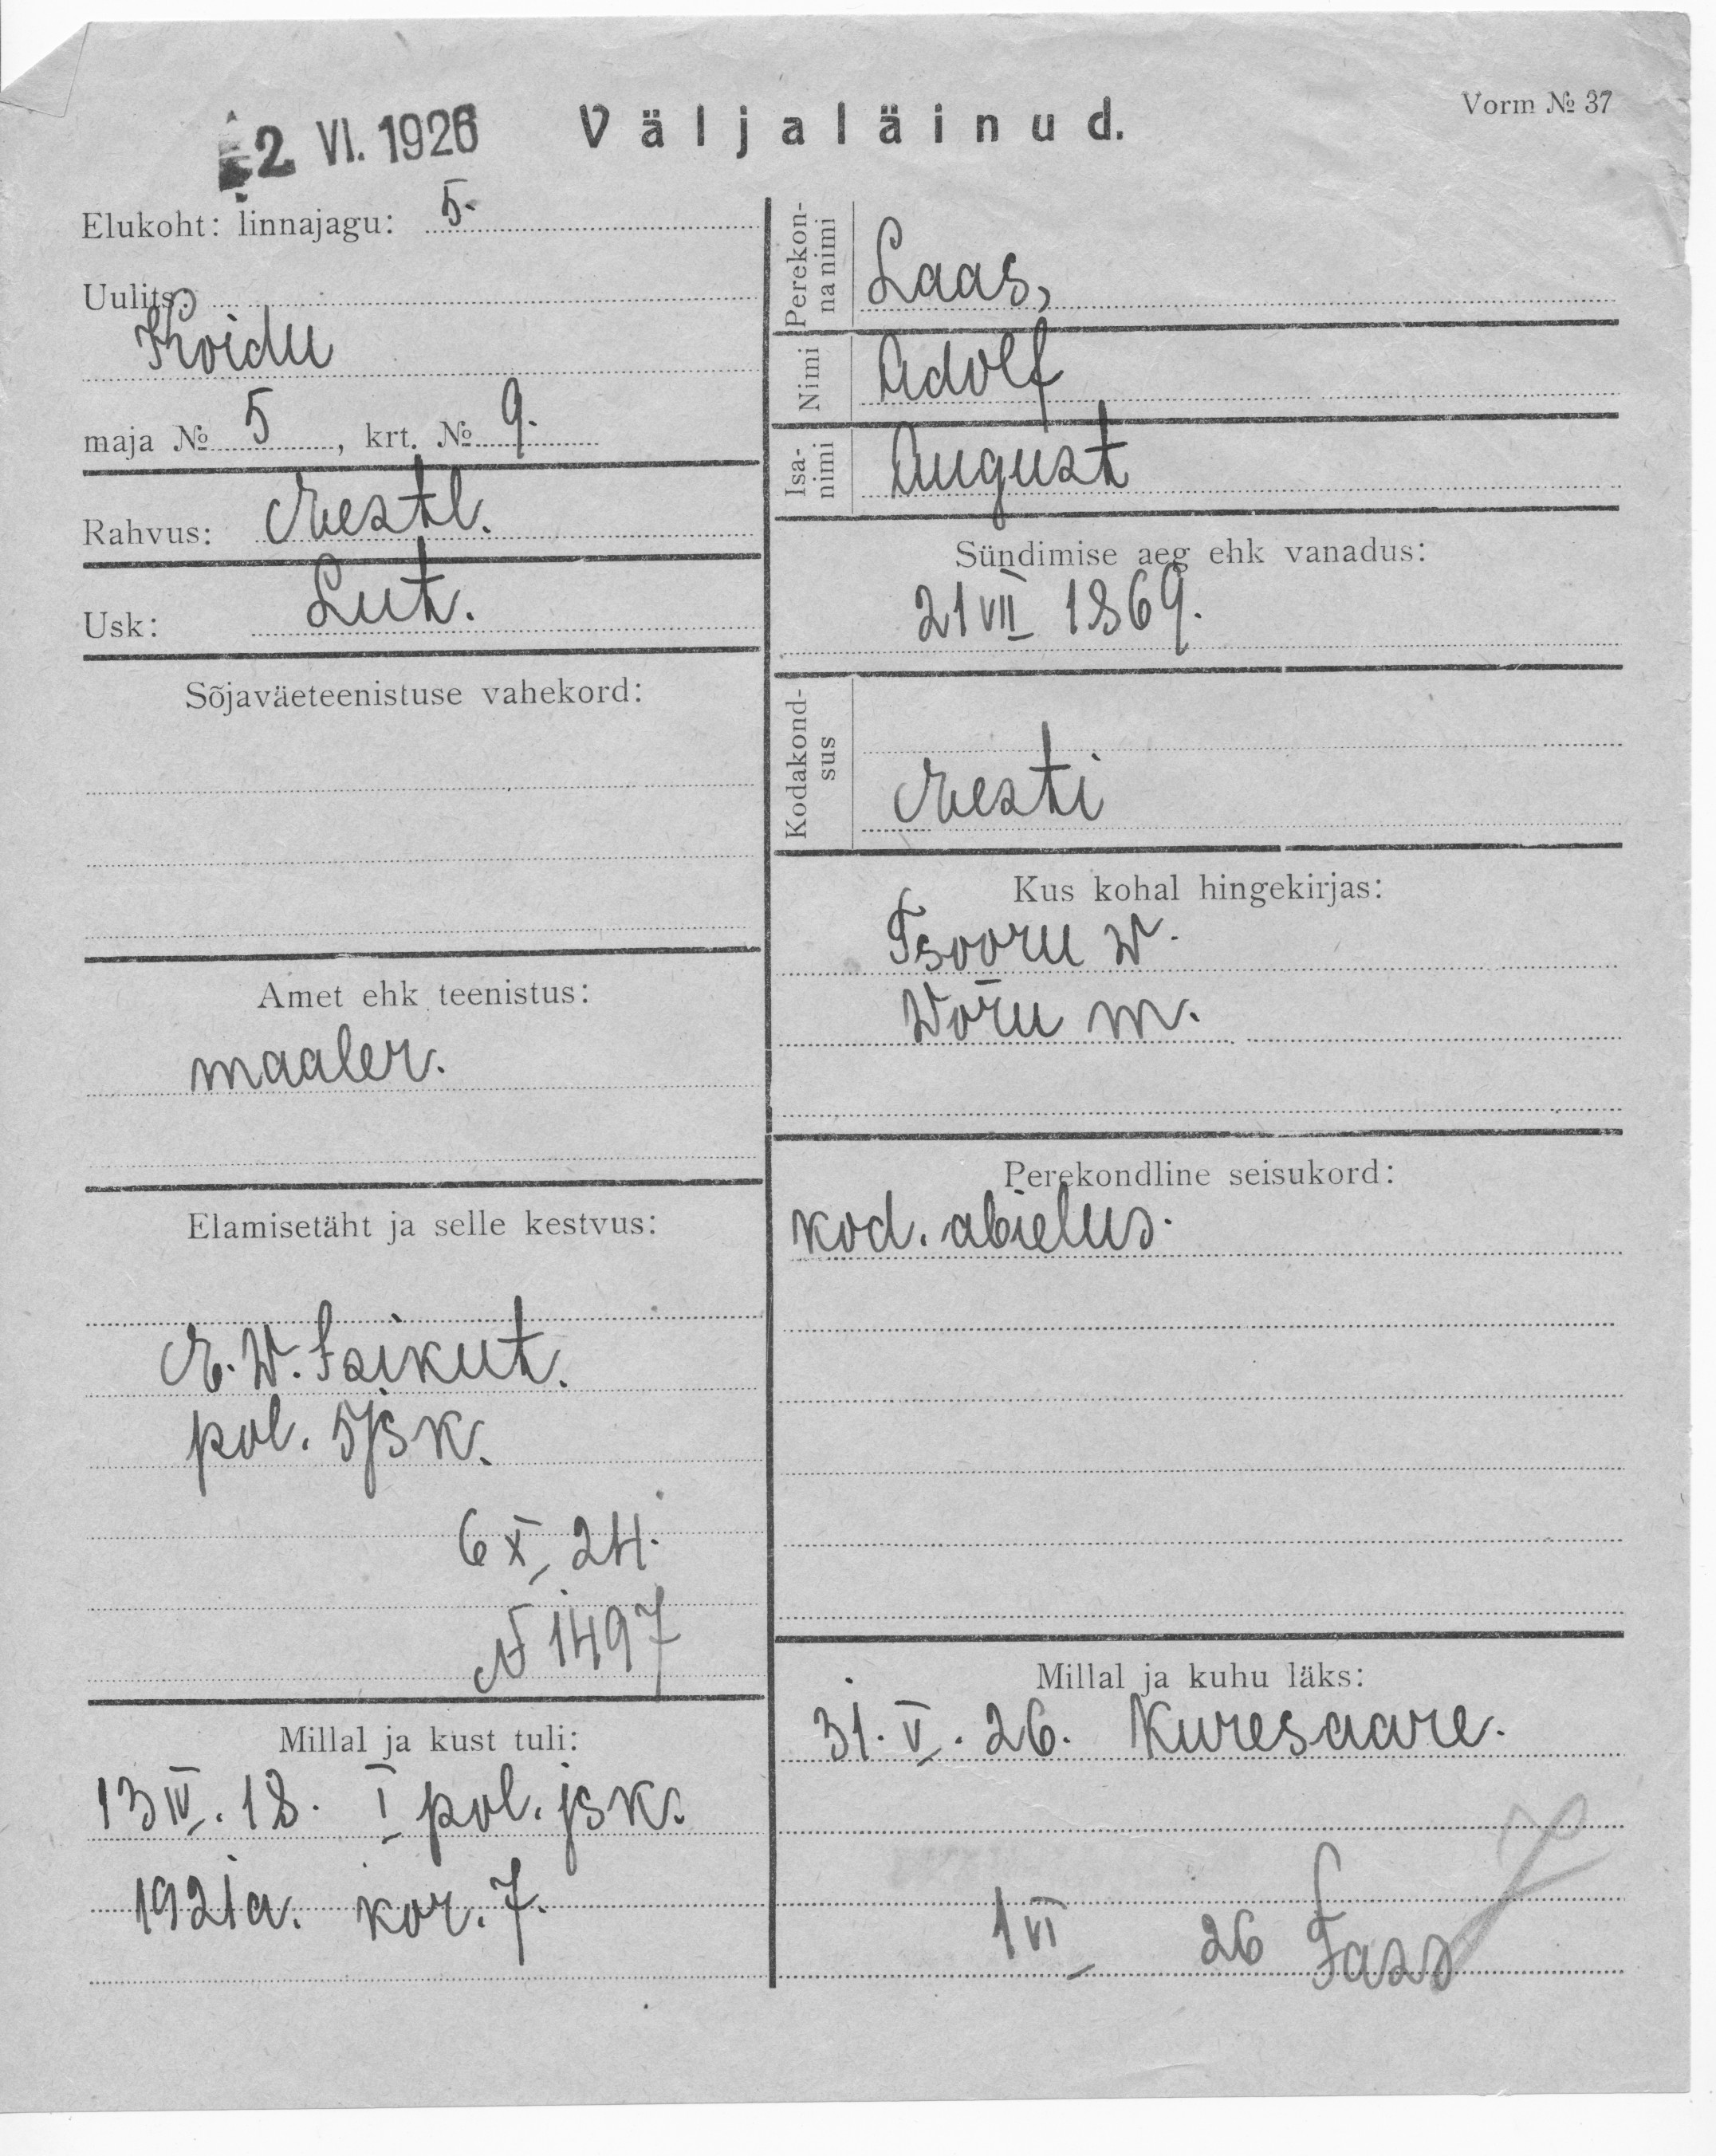 2. VI. 1926
Väljaläinud.
Vorm № 37
Elukoht: linnajagu: 5.
Uulits:
Koidu
maja № 5, krt. № 9.
Rahvus: Eestl.
Usk: Lut.
Sõjaväeteenistuse vahekord:
Amet ehk teenistus:
maaler.
Elamisetäht ja selle kestvus:
E. W. isikut.
pol. 5 jsk.
6 X 24.
N 1497
Millal ja kust tuli:
13 IV. 18. I pol. jsk.
1921 a. kor. 7.
Perekon-
na nimi
Laas,
Nimi
Adolf
Isa-
nimi
August
Sündimise aeg ehk vanadus:
21 VII 1869.
Kodakond-
sus
Eesti
Kus kohal hingekirjas:
Tsooru w.
Wõru m.
Perekondline seisukord:
kod. abielus.
Millal ja kuhu läks:
31. V. 26. Kuresaare.
1 VI 26